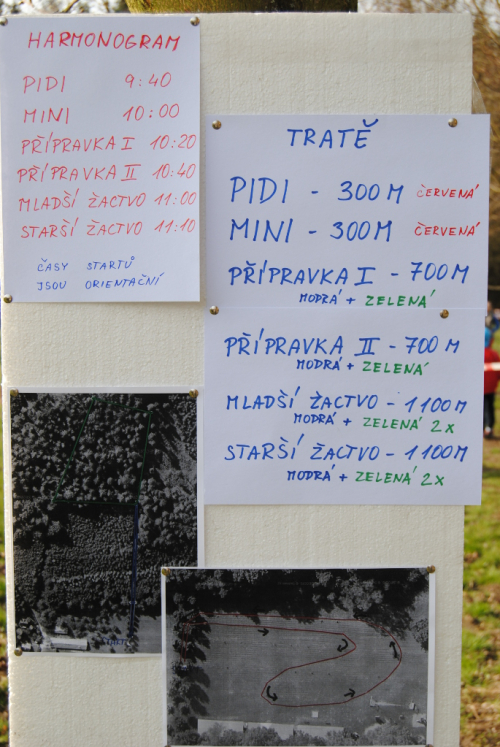 HARMONOGRAM
PIDI 9:40
MINI 10:00
PŘÍPRAVKA I 10:20
PŘÍPRAVKA II 10:40
MLADŠÍ ŽACTVO 11:00
STARŠÍ ŽACTVO 11:10
ČASY STARTŮ
JSOU ORIENTAČNÍ
TRATĚ
PIDI - 300M ČERVENÁ
MINI - 300M ČERVENÁ
PŘÍPRAVKA I - 700M
MODRÁ + ZELENÁ
PŘÍPRAVKA II - 700M
MODRÁ + ZELENÁ
MLADŠÍ ŽACTVO - 1100M
MODRÁ + ZELENÁ 2X
STARŠÍ ŽACTVO - 1100M
MODRÁ + ZELENÁ 2X